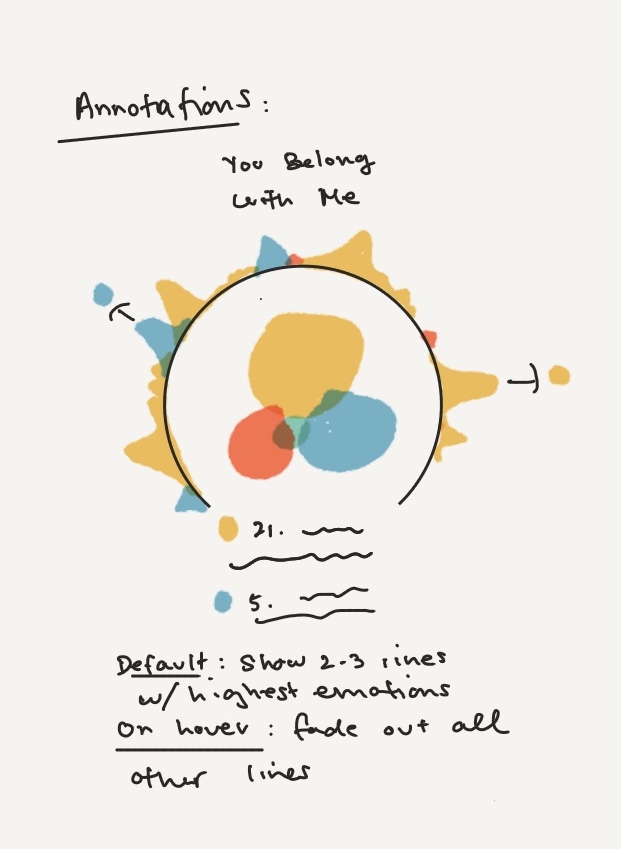 Annotations:
You Belong
with Me
21.
5.
Default: Show 2-3 lines
w/ highest emotions
On hover: fade out all
other lines